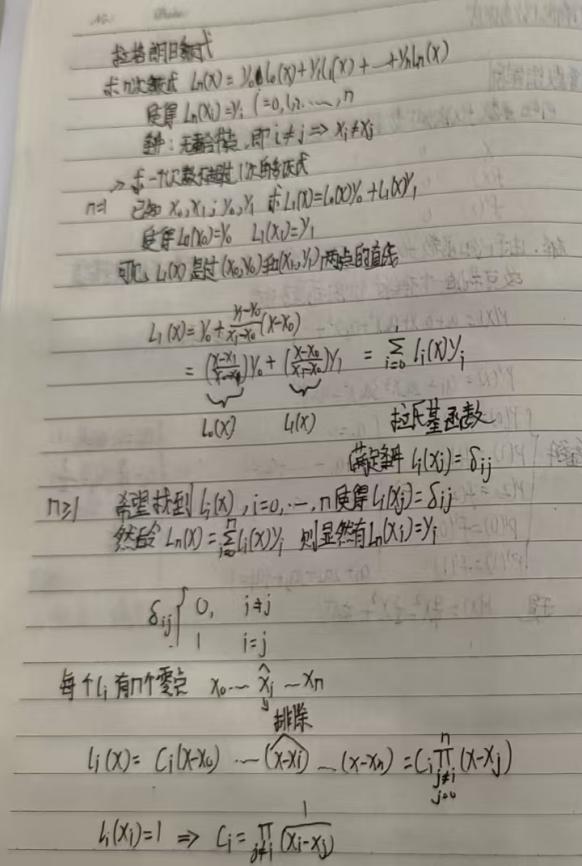 No: Date:
拉格朗日多项式
求n次多项式 Ln(x) = y₀l₀(x)+y₁l₁(x)+…+ynln(x)
使得 Ln(xi)=yi i=0,1,2,…,n
条件:无重合节点,即 i≠j ⇒ xi≠xj
→ 求一个次数不超过1次的多项式
n=1 已知 x₀,x₁;y₀,y₁ 求 L₁(x)=l₀(x)y₀+l₁(x)y₁
使得 L₁(x₀)=y₀ L₁(x₁)=y₁
可见 L₁(x) 是过(x₀,y₀)和(x₁,y₁)两点的直线
L₁(x)=y₀+\frac{y₁-y₀}{x₁-x₀}(x-x₀)
=(\frac{x-x₁}{x₀-x₁})y₀+(\frac{x-x₀}{x₁-x₀})y₁ = \sum_{i=0}^{1} li(x)yi
l₀(x) l₁(x) 拉氏基函数
满足条件 li(xj)=δij
n≥1 希望找到 li(x),i=0,…,n 使得 li(xj)=δij
然后令 Ln(x)=\sum_{i=0}^{n} li(x)yi 则显然有 Ln(xi)=yi
δij { 0, i≠j
1 i=j
每个 li 有n个零点 x₀…x̂i…xn
排除
li(x)= Ci(x-x₀)…(x-xi)…(x-xn)=Ci\prod_{j≠i, j=0}^{n}(x-xj)
li(xi)=1 ⇒ Ci=\prod_{j≠i}\frac{1}{(xi-xj)}